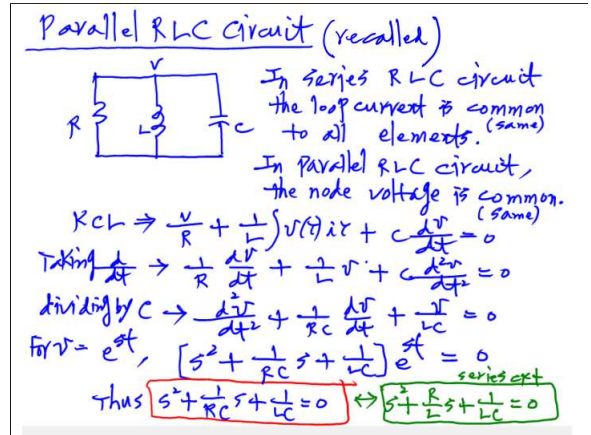 Parallel RLC Circuit (recalled)
V
R
L
C
In series RLC circuit
the loop current is common
(same)
to all elements.
In parallel RLC circuit,
the node voltage is common.
(same)
KCL ⇒ v/R + 1/L ∫v(τ)dτ + C dv/dt = 0
Taking d/dt → 1/R dv/dt + 1/L v + C d²v/dt² = 0
dividing by C → d²v/dt² + 1/RC dv/dt + v/LC = 0
For v = e^st, [s² + 1/RC s + 1/LC] e^st = 0
series ckt
Thus s² + 1/RC s + 1/LC = 0 ↔ s² + R/L s + 1/LC = 0